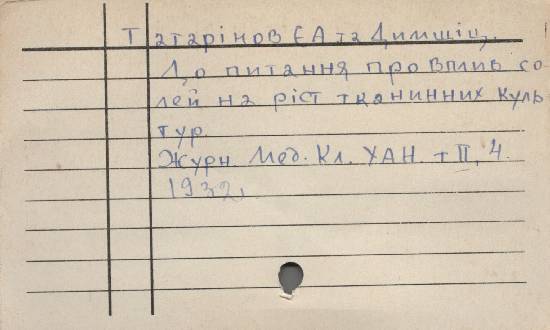 Татарінов ЄА та Димшіц,.
До питання про вплив со
лей на ріст тканинних куль
тур
Журн. Мед. Кл. УАН. т II, 4.
1932,